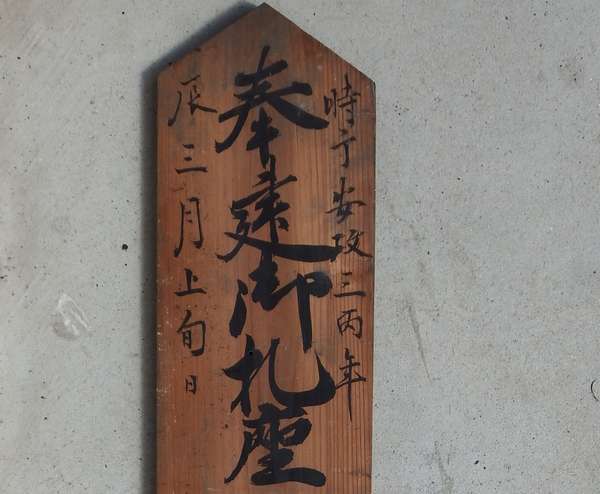 時于安政三丙年
奉建御札座
辰三月上旬日